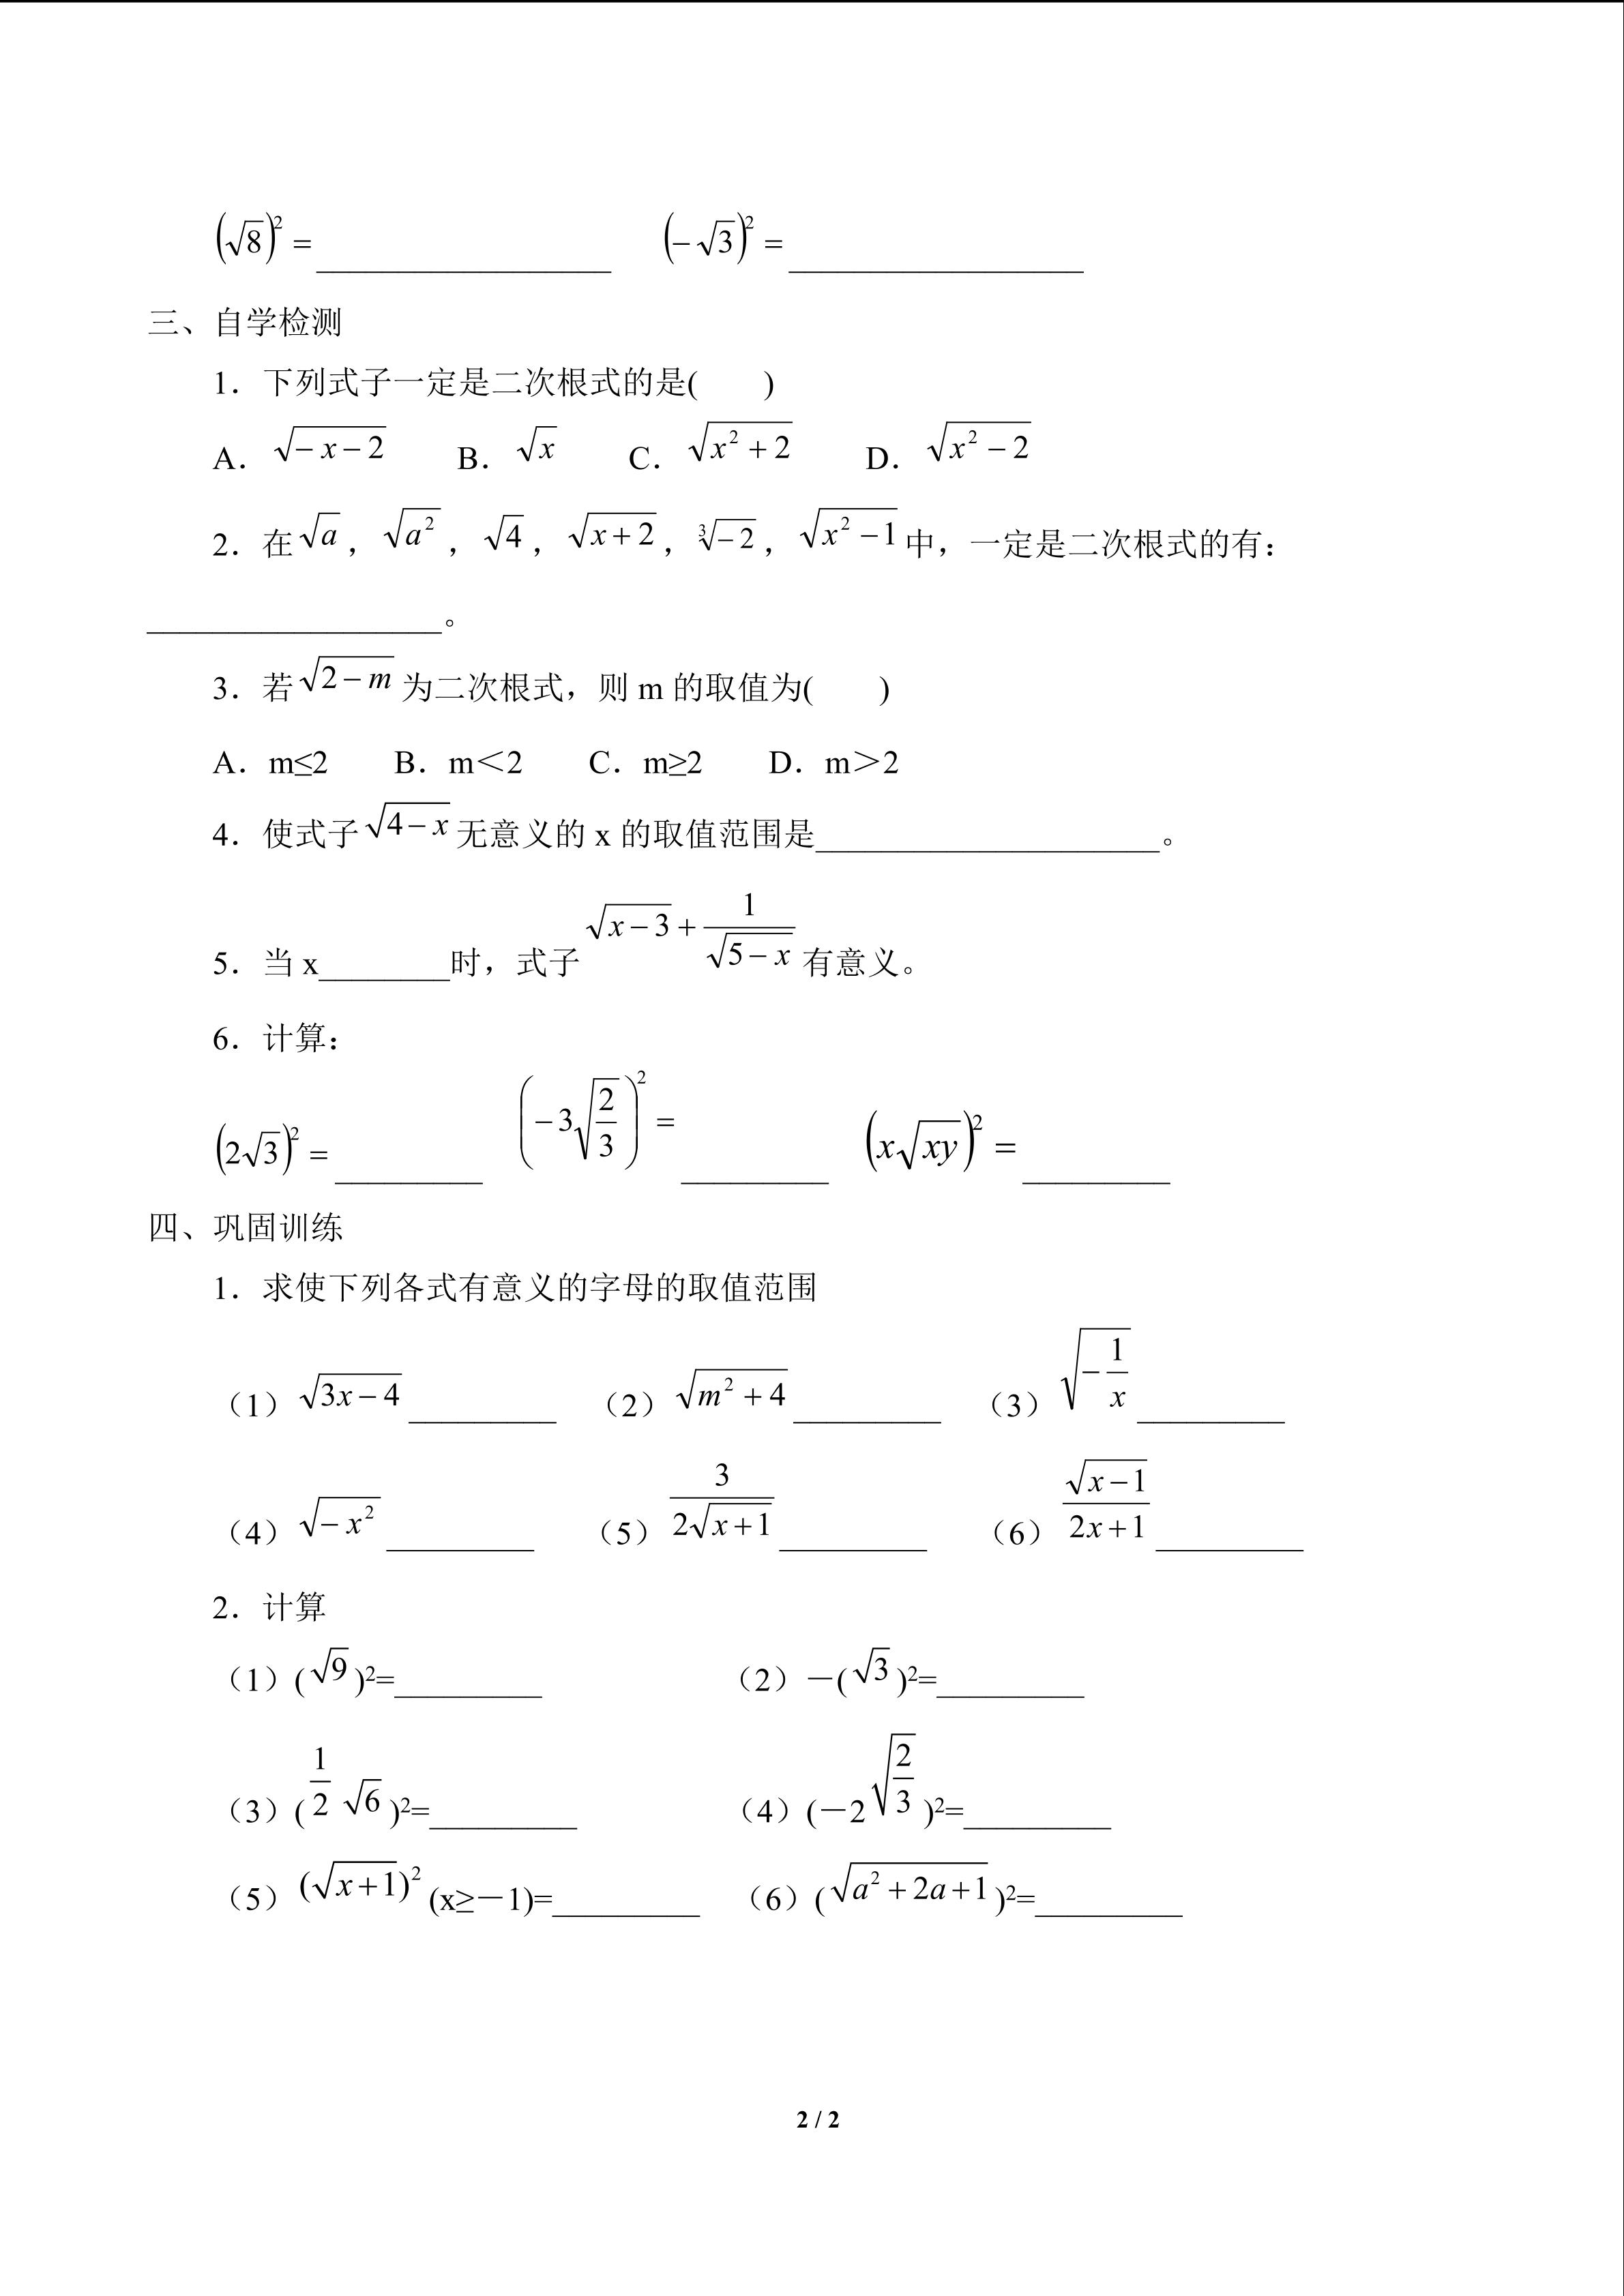 (√8)²=__________________ (-√3)²=__________________
三、自学检测
1．下列式子一定是二次根式的是(  )
A．√(-x-2) B．√x C．√(x²+2) D．√(x²-2)
2．在√a，√(a²)，√4，√(x+2)，∛(-2)，√(x²-1)中，一定是二次根式的有：
__________________。
3．若√(2-m)为二次根式，则 m 的取值为(  )
A．m≤2 B．m＜2 C．m≥2 D．m＞2
4．使式子√(4-x)无意义的 x 的取值范围是_____________________。
5．当 x________时，式子√(x-3)+1/√(5-x)有意义。
6．计算：
(2√3)²=_________ (-3√(2/3))²=_________ (x√(xy))²=_________
四、巩固训练
1．求使下列各式有意义的字母的取值范围
（1）√(3x-4)_________ （2）√(m²+4)_________ （3）√(-1/x)_________
（4）√(-x²)_________ （5）3/(2√(x+1))_________ （6）√(x-1)/(2x+1)_________
2．计算
（1）(√9)²=_________ （2）－(√3)²=_________
（3）(1/2 √6)²=_________ （4）(－2√(2/3))²=_________
（5）(√(x+1))²(x≥－1)=_________ （6）(√(a²+2a+1))²=_________
2 / 2